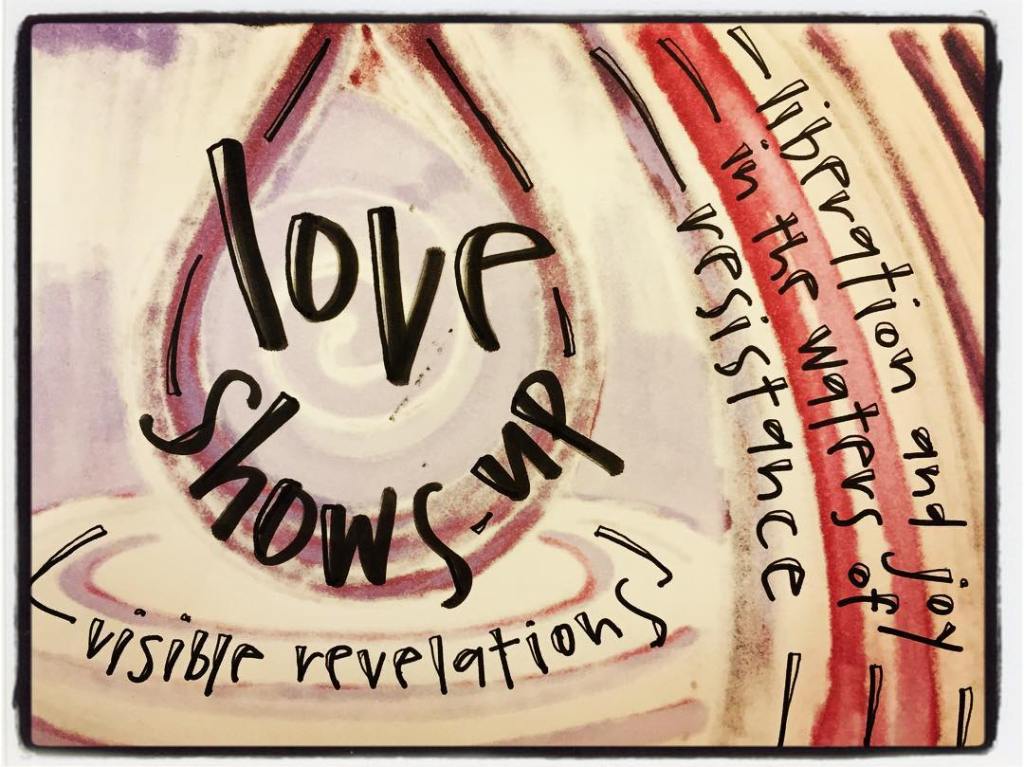 love
shows-up
visible revelations
liberation and joy
in the waters of
resistance